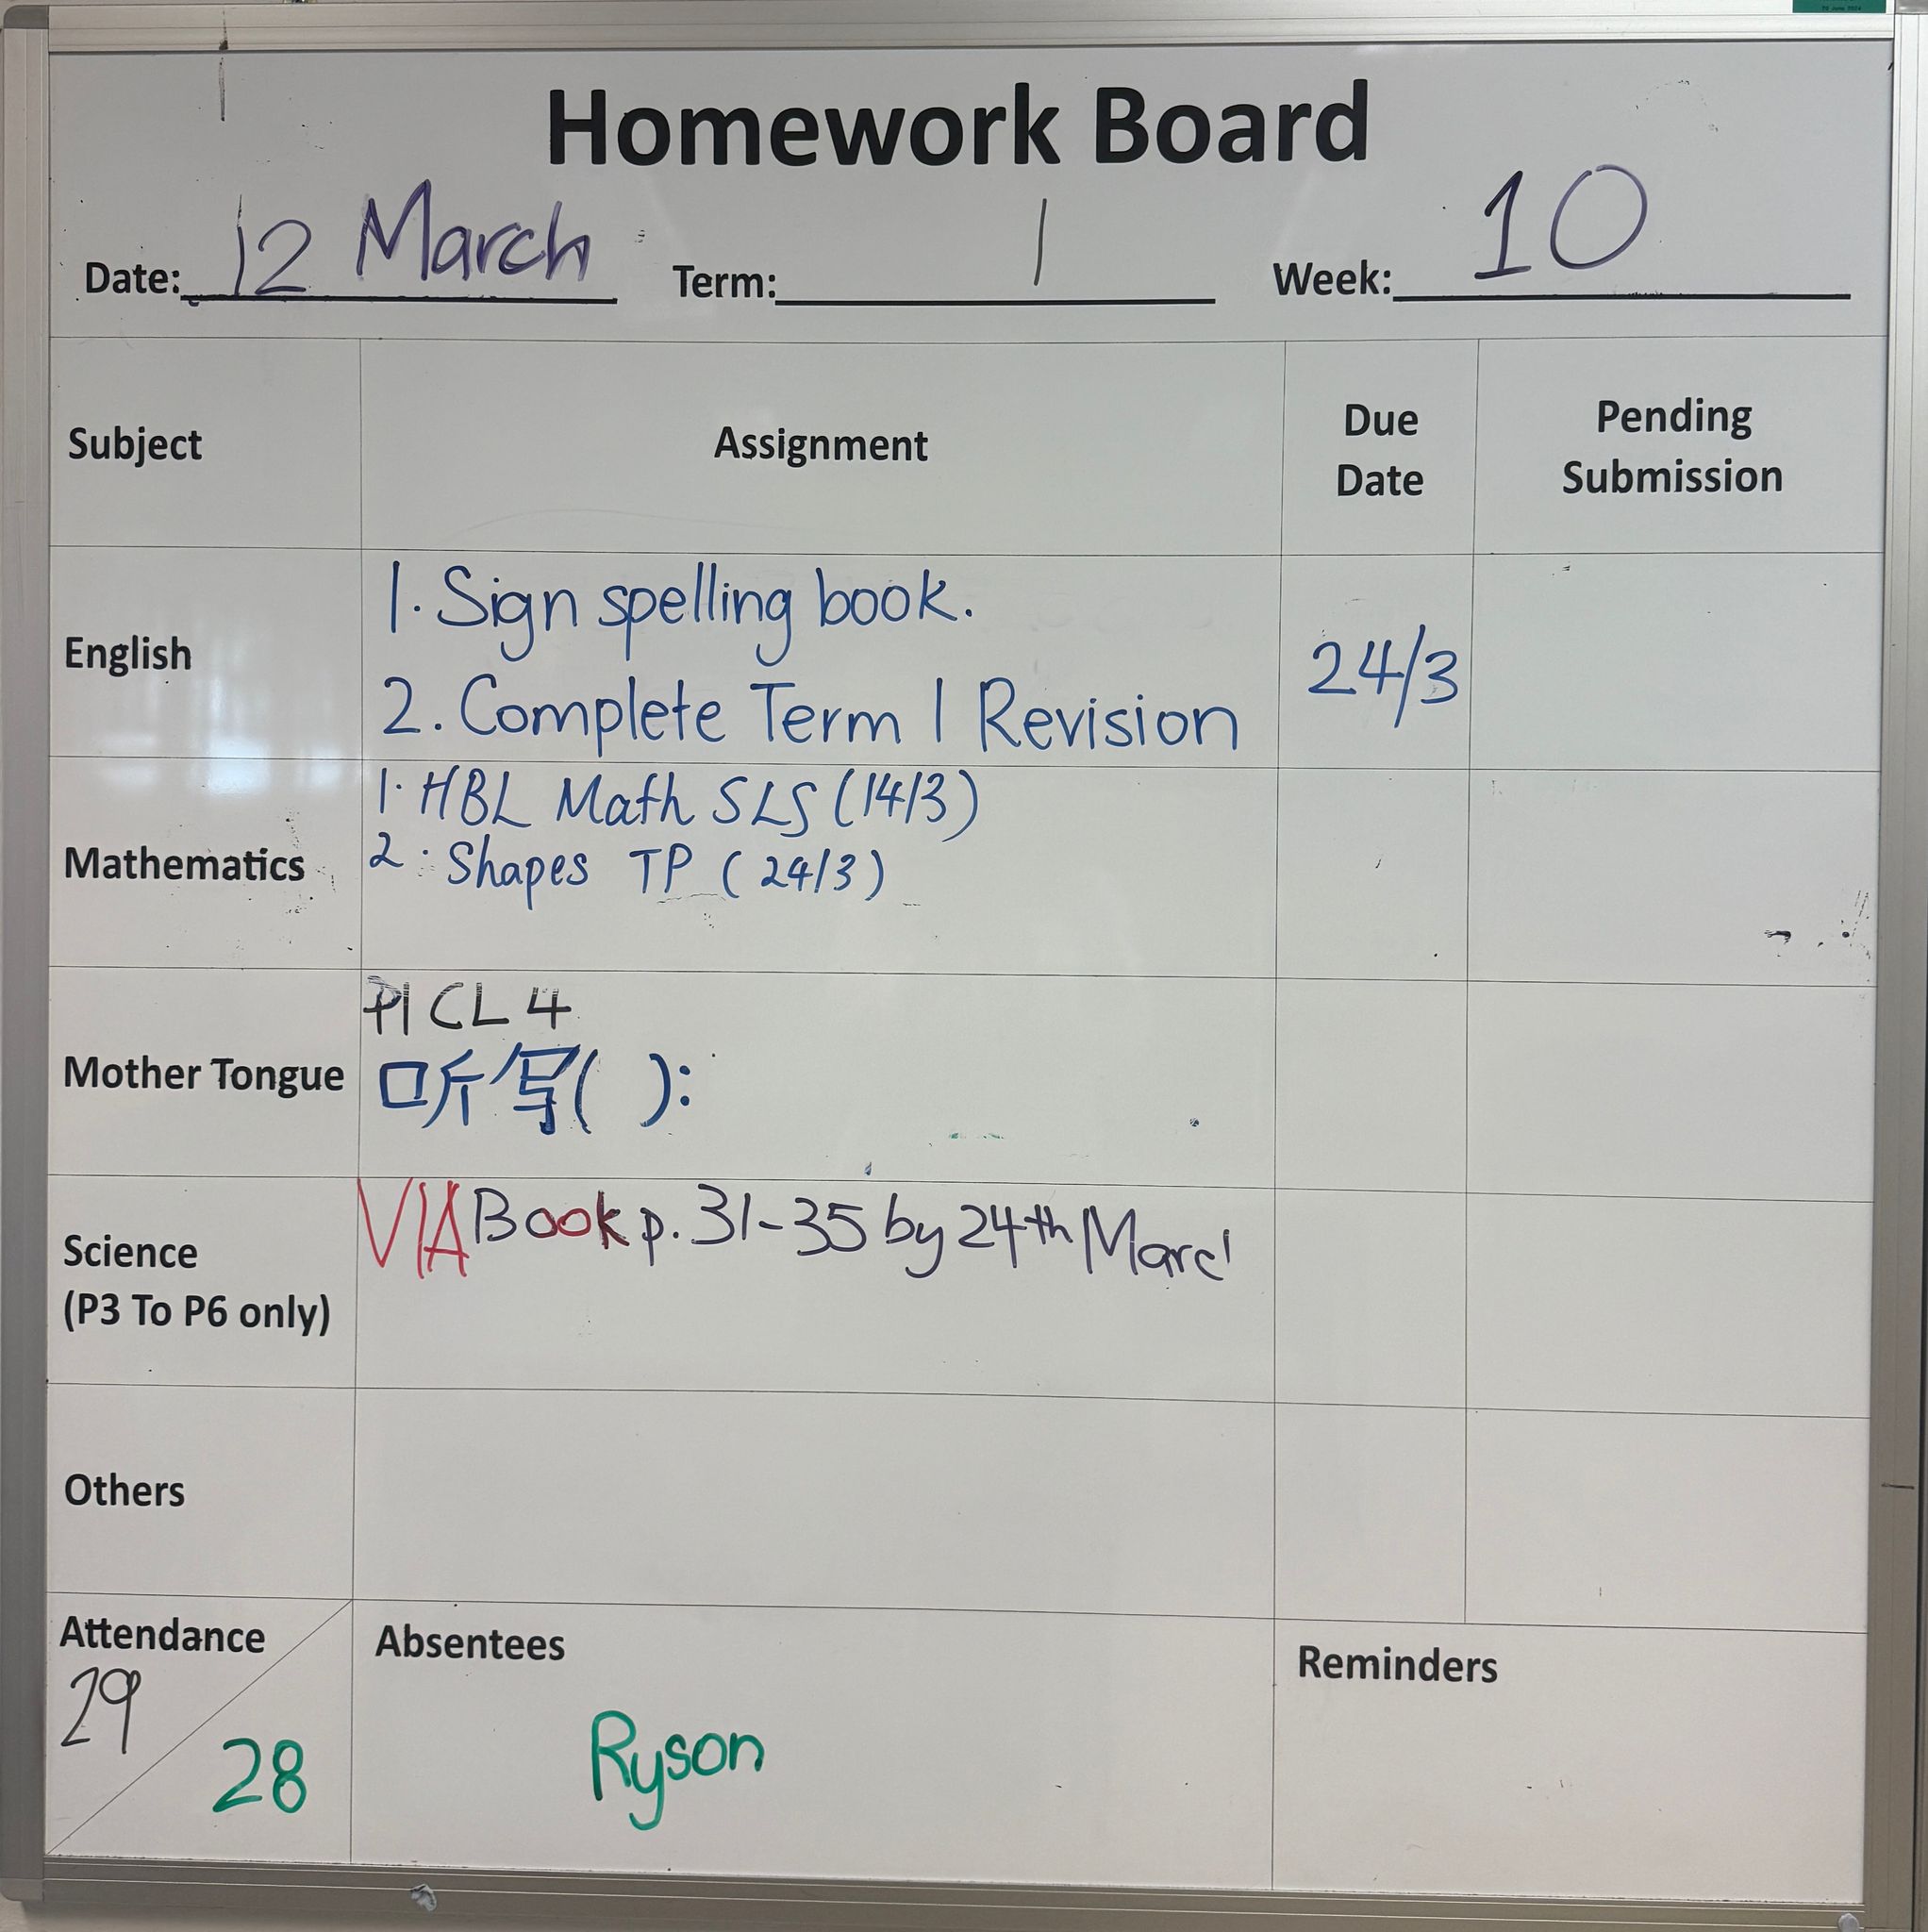 Homework Board
Date: 12 March Term: 1 Week: 10
Subject Assignment Due Date Pending Submission
English
1. Sign spelling book.
2. Complete Term 1 Revision
24/3
Mathematics
1. HBL Math SLS (14/3)
2. Shapes TP (24/3)
Mother Tongue
CL 4
听写( ):
Science
(P3 To P6 only)
VIA Book p. 31-35 by 24th March
Others
Attendance
29
28
Absentees
Ryson
Reminders